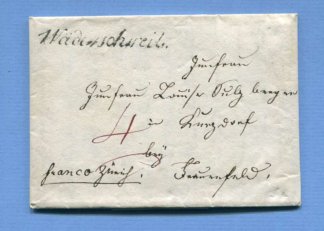 Wädenschweil.
Jungfrau
Jungfrau Louise Sulzberger
in Kurzdorf
4
bey
franco Zürich. Frauenfeld.